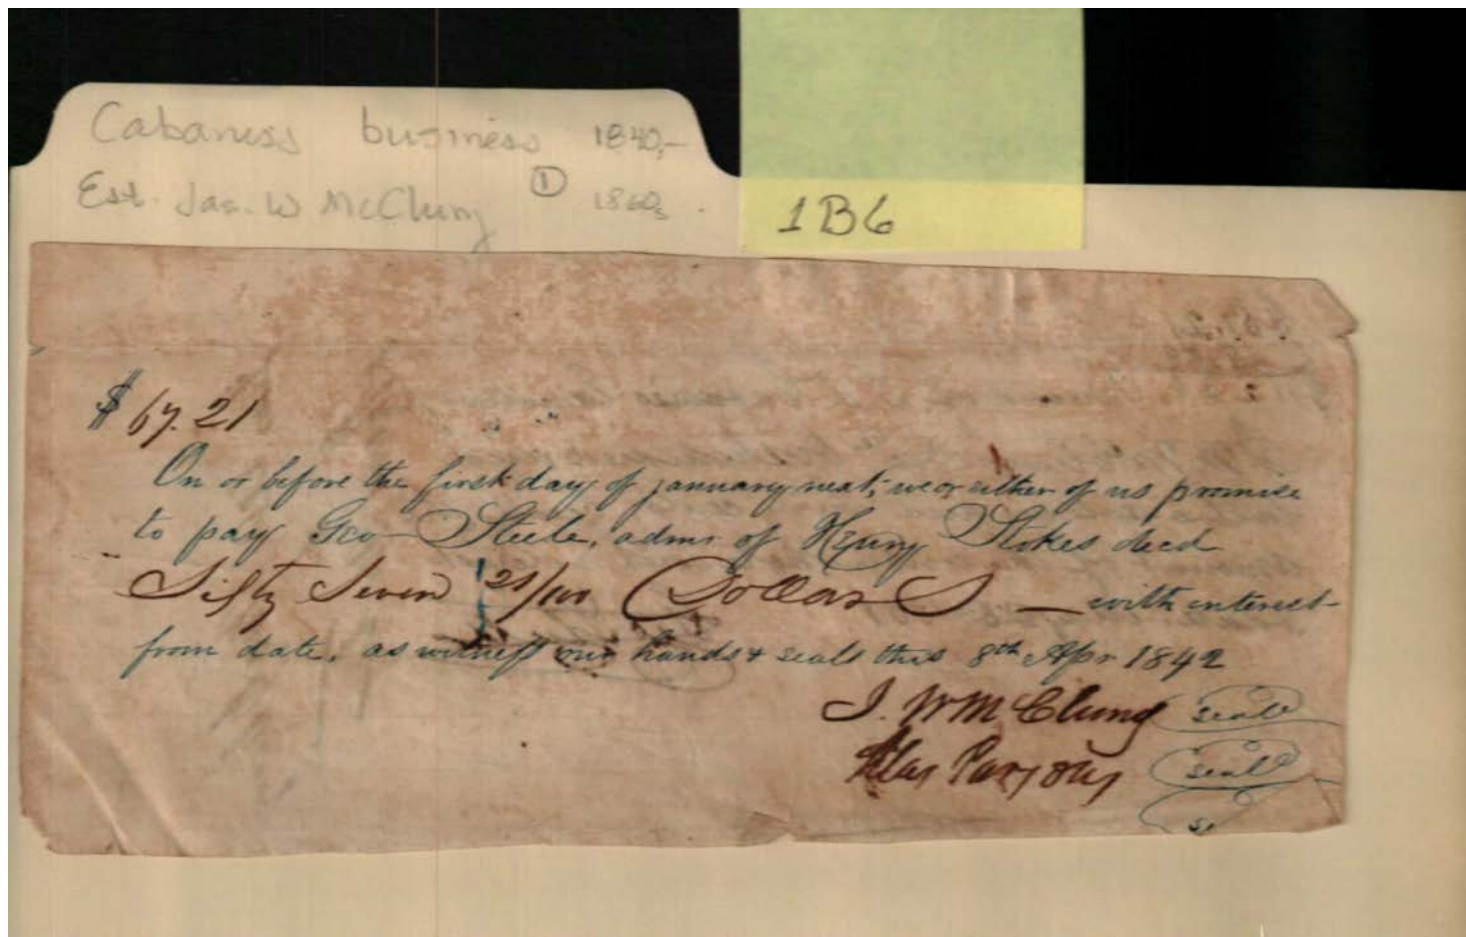 Cabaness business 1840,-
Est. Jas. W McClung ① 1860s.
1B6
$ 67.21
On or before the first day of january next, we or either of us promise
to pay Geo Steele, admr of Henry Stokes decd
Sifty Seven 21/100 Dollars — with interest
from date, as witness our hands & seals this 8th Apr 1842
J. W McClung seal
Parsons seal